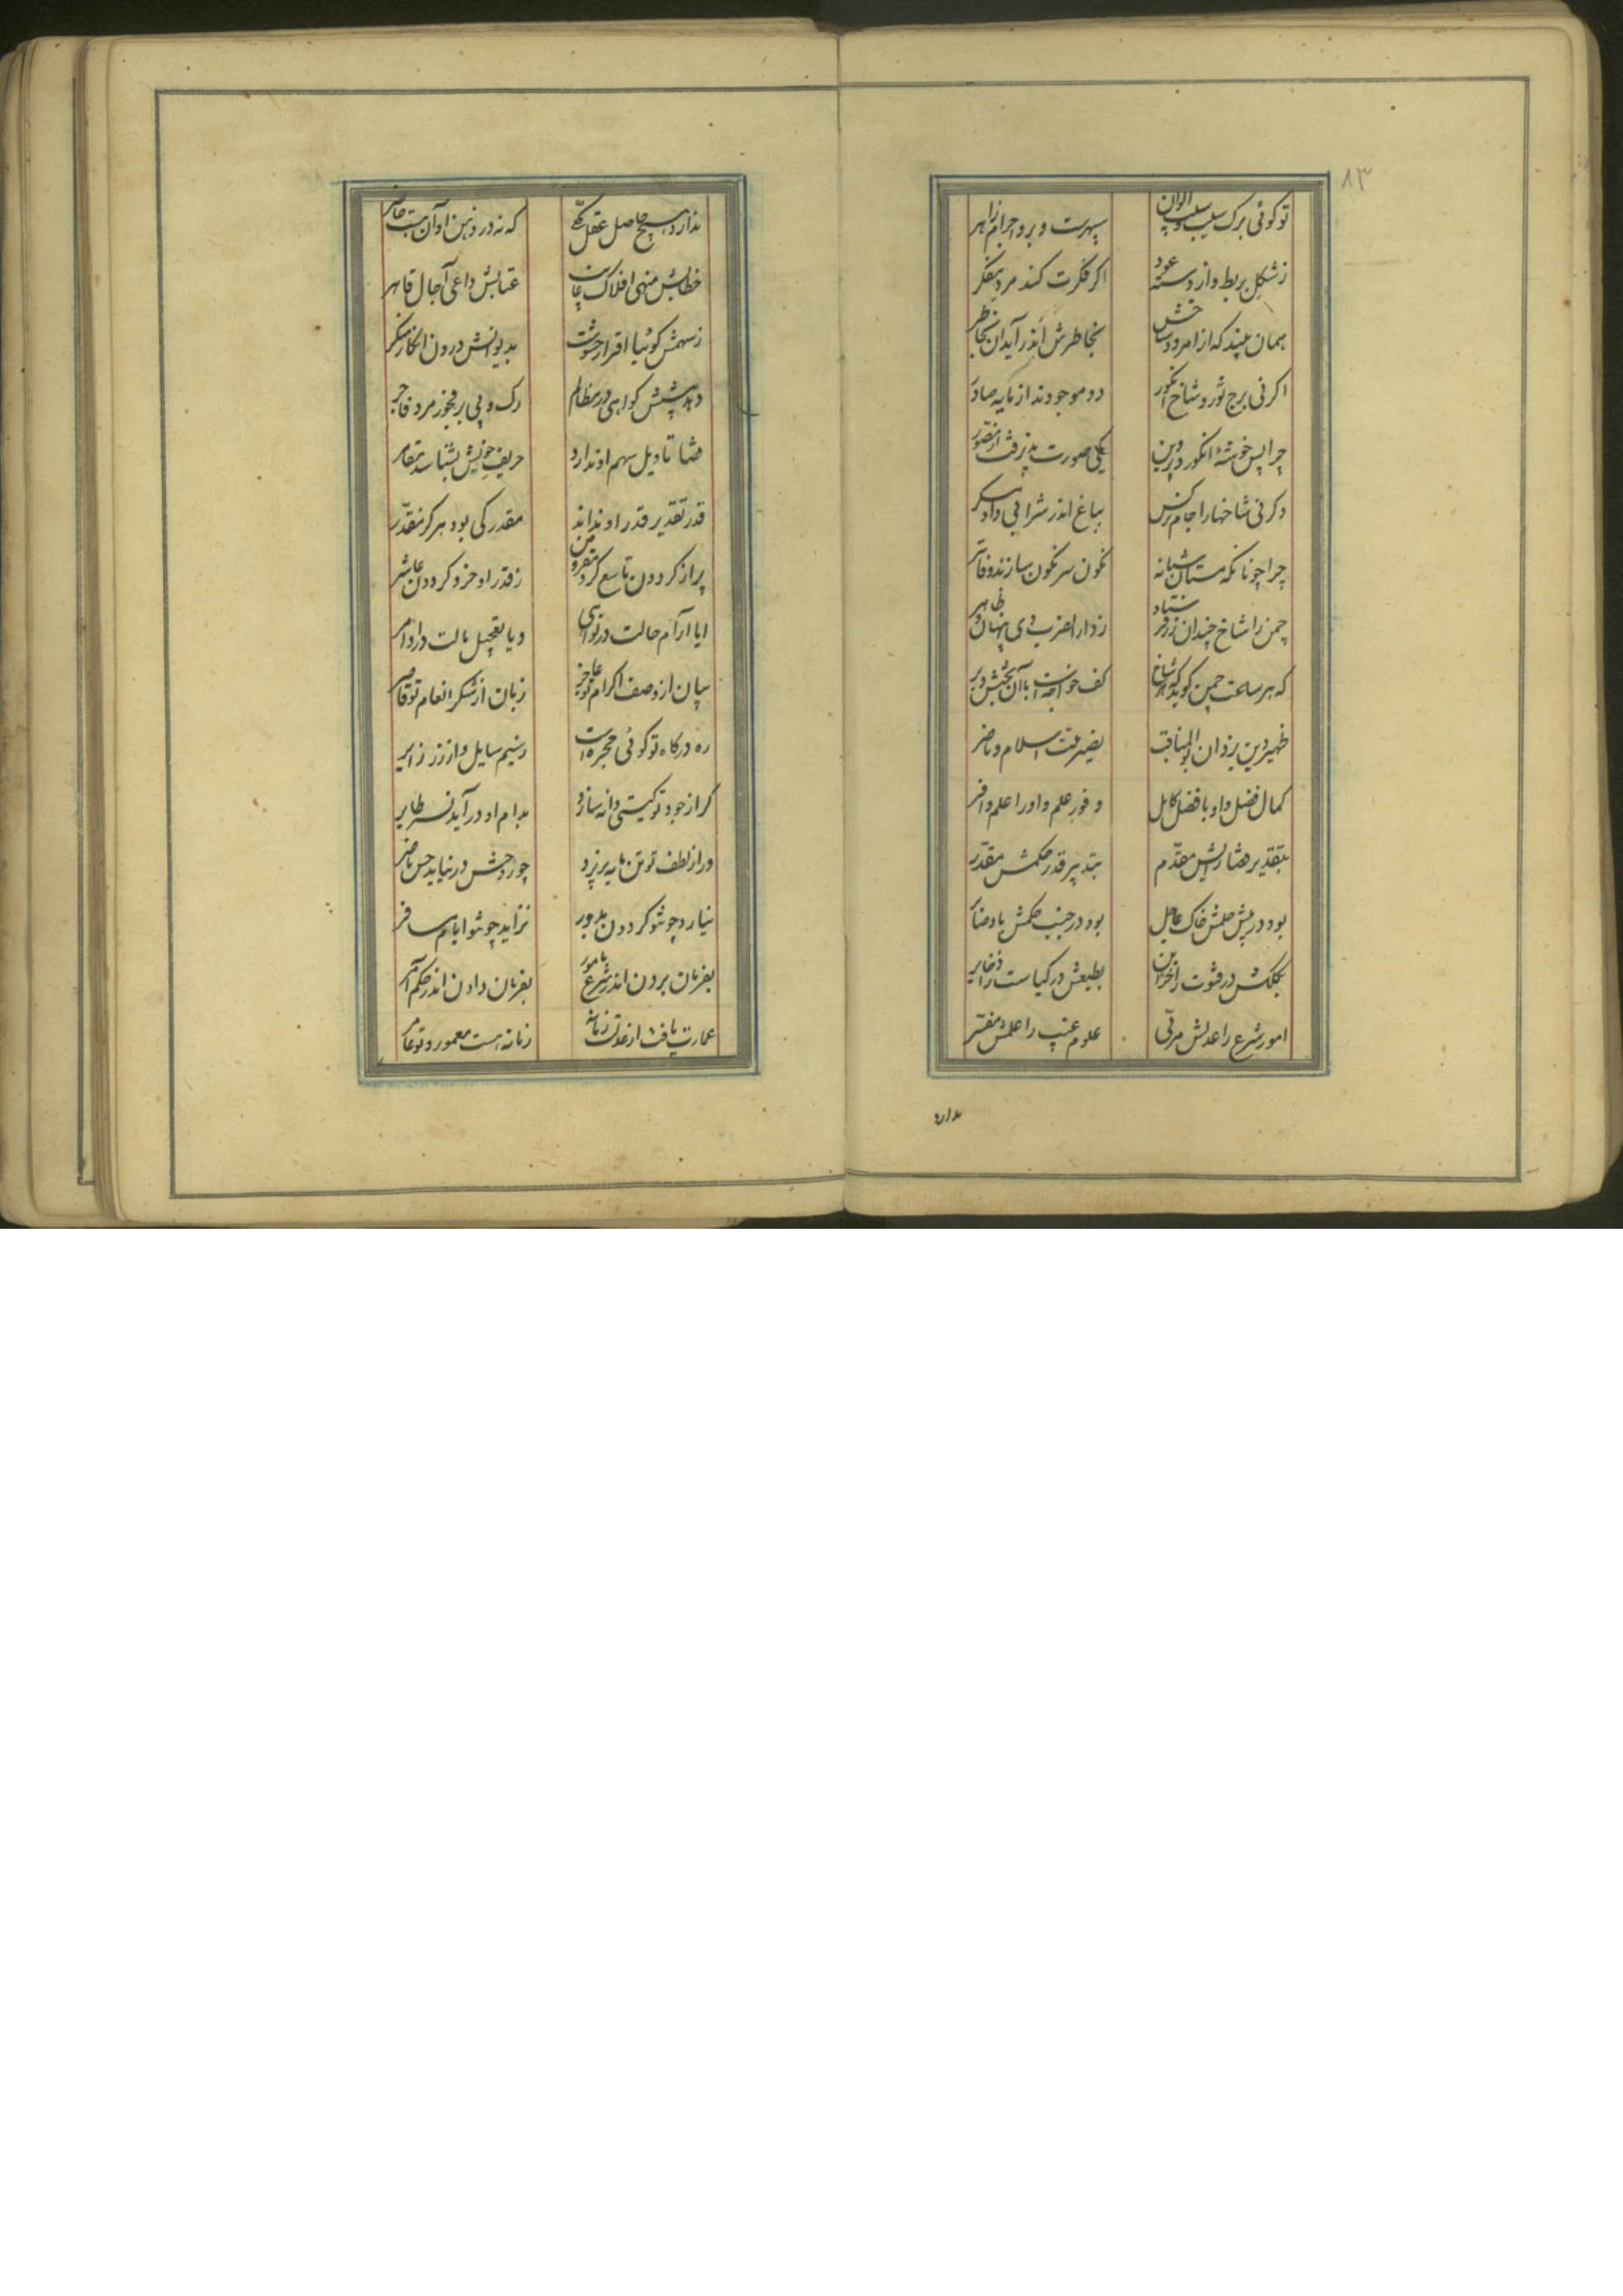 ۸۳
توگوئی برگ سیب و سیب الوان سپهرست و برو اجرام زاهر
زشکل بربط و از دسته عود اگر فکرت کند مرد مفکر
همان بیند که از امرود و شاخش بخاطرش اندر آید آن بخاطر
اگر نی برج ثور و شاخ انگور دو موجودند از مایه صادر
چرا پس خوشهٔ انگور و پروین یکی صورت پذیرفت از مصور
وگر نی شاخها را جام نرگس بباغ اندر شرابی داد مسکر
چرا چونانکه مستان شبانه نگون سر نگون سازند و فاتر
چمن را شاخ چندان زر فرستاد زدار الضرب دی پنهان و ظاهر
که هر ساعت چمن گوید که هر شاخ کف خواجه است با آن بخشش و بر
ظهیر دین یزدان بوالمناقب نصیر ملت اسلام و ناصر
کمال فضل و او با فضل کامل وفور علم و او را علم وافر
بتقدیر قضا رایش مقدم بتدبیر قدر حکمش مقدر
بود در پیش حلمش خاک عاجل بود در جنب حکمش باد صابر
بکلکش در فتوت را خزاین بطبعش در کیاست را ذخایر
امور شرع را عدلش مربی علوم غیب را علمش مفسر
ندارد
ندارد هیچ حاصل عقل کلی که نه در ذهن او آن هست حاضر
خطابش منهی افلاک عتابش داعی آجال قاهر
زسهمش گوئیا اقرار خوشست بدیوانش درون انکار منکر
دهد پیشش گواهی در مظالم رگ و پی بر فجور مرد فاجر
قضا تاویل سهم او ندارد حریف خویش بشناسد مقامر
قدر تقدیر قدر او نداند مقدر کی بود هرگز مقدر
پر از گردون تاسع کرد زقدر او خرد گردون عاشر
ایا آرام حالت در نواهی و یا تعجیل بالت در اوامر
بیان از وصف اکرام تو عاجز زبان از شکر انعام تو قاصر
ره درگاه تو گوئی مجره است زسیم سایل و از زر زایر
گر از جود تو گیتی دانه سازد بدام او درآید نسر طایر
ور از لطف تو تن مایه پذیرد چو روحش در نیاید حس ناظر
نیارد چو تو گردون مدور نزاید چو تو ایام مسافر
بفرمان بردن اندر شرع مامور بفرمان دادن اندر حکم آمر
عمارت یافت از عدلت زمانه زمانه هست معمور و تو عامر